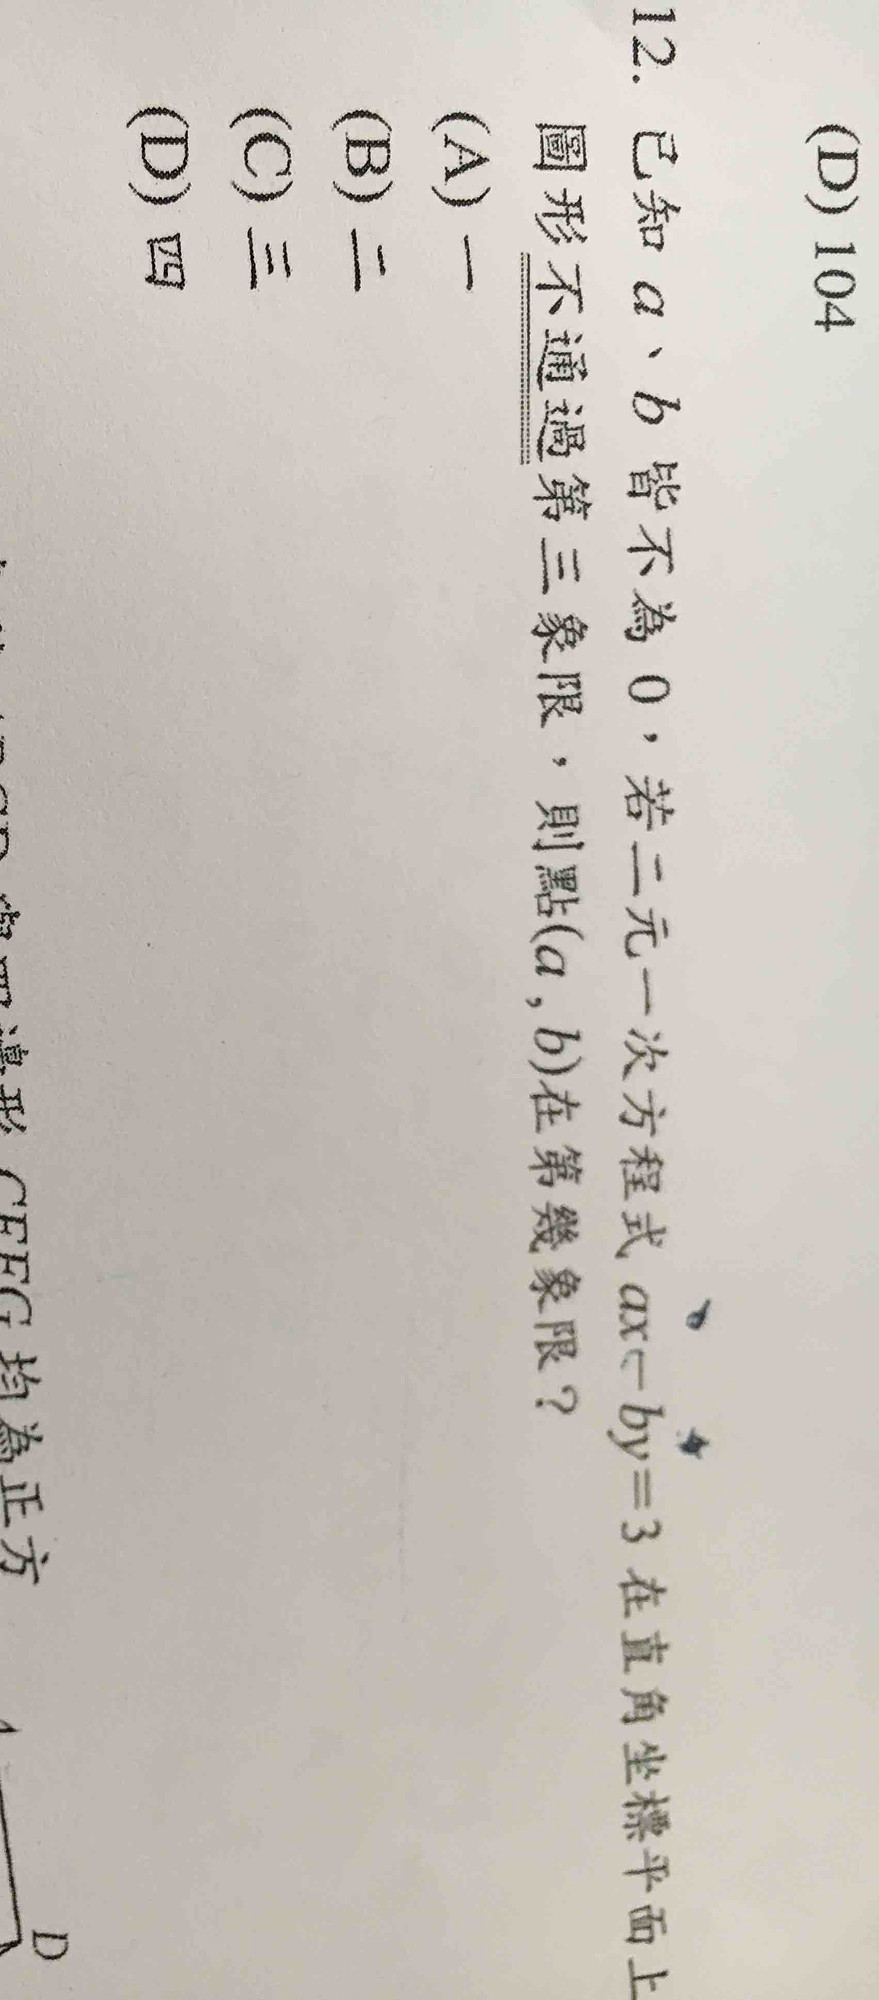 (D) 104
12. 已知 a、b 皆不為 0，若二元一次方程式 ax－by＝3 在直角坐標平面上
圖形不通過第三象限，則點(a , b)在第幾象限？
(A) 一
(B) 二
(C) 三
(D) 四
四邊形 CEFG 均為正方
D